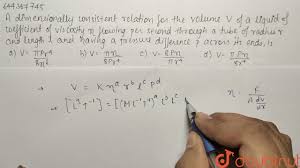 644 354 745
A dimensionally consistent relation for the volume V of a liquid of
coefficient of viscosity η flowing per second through a tube of radius r
and length l and having a pressure difference p across its ends, is
a) V = πPr⁴/8ηl b) V = πηl/8Pr⁴ c) V = 8Pηl/πr⁴ d) V = πPη/8lr⁴
V = K η^a r^b l^c p^d
→ [L³T⁻¹] = [(ML⁻¹T⁻¹)^a L^b L^c
η = F / A dv/dx
doubtnut